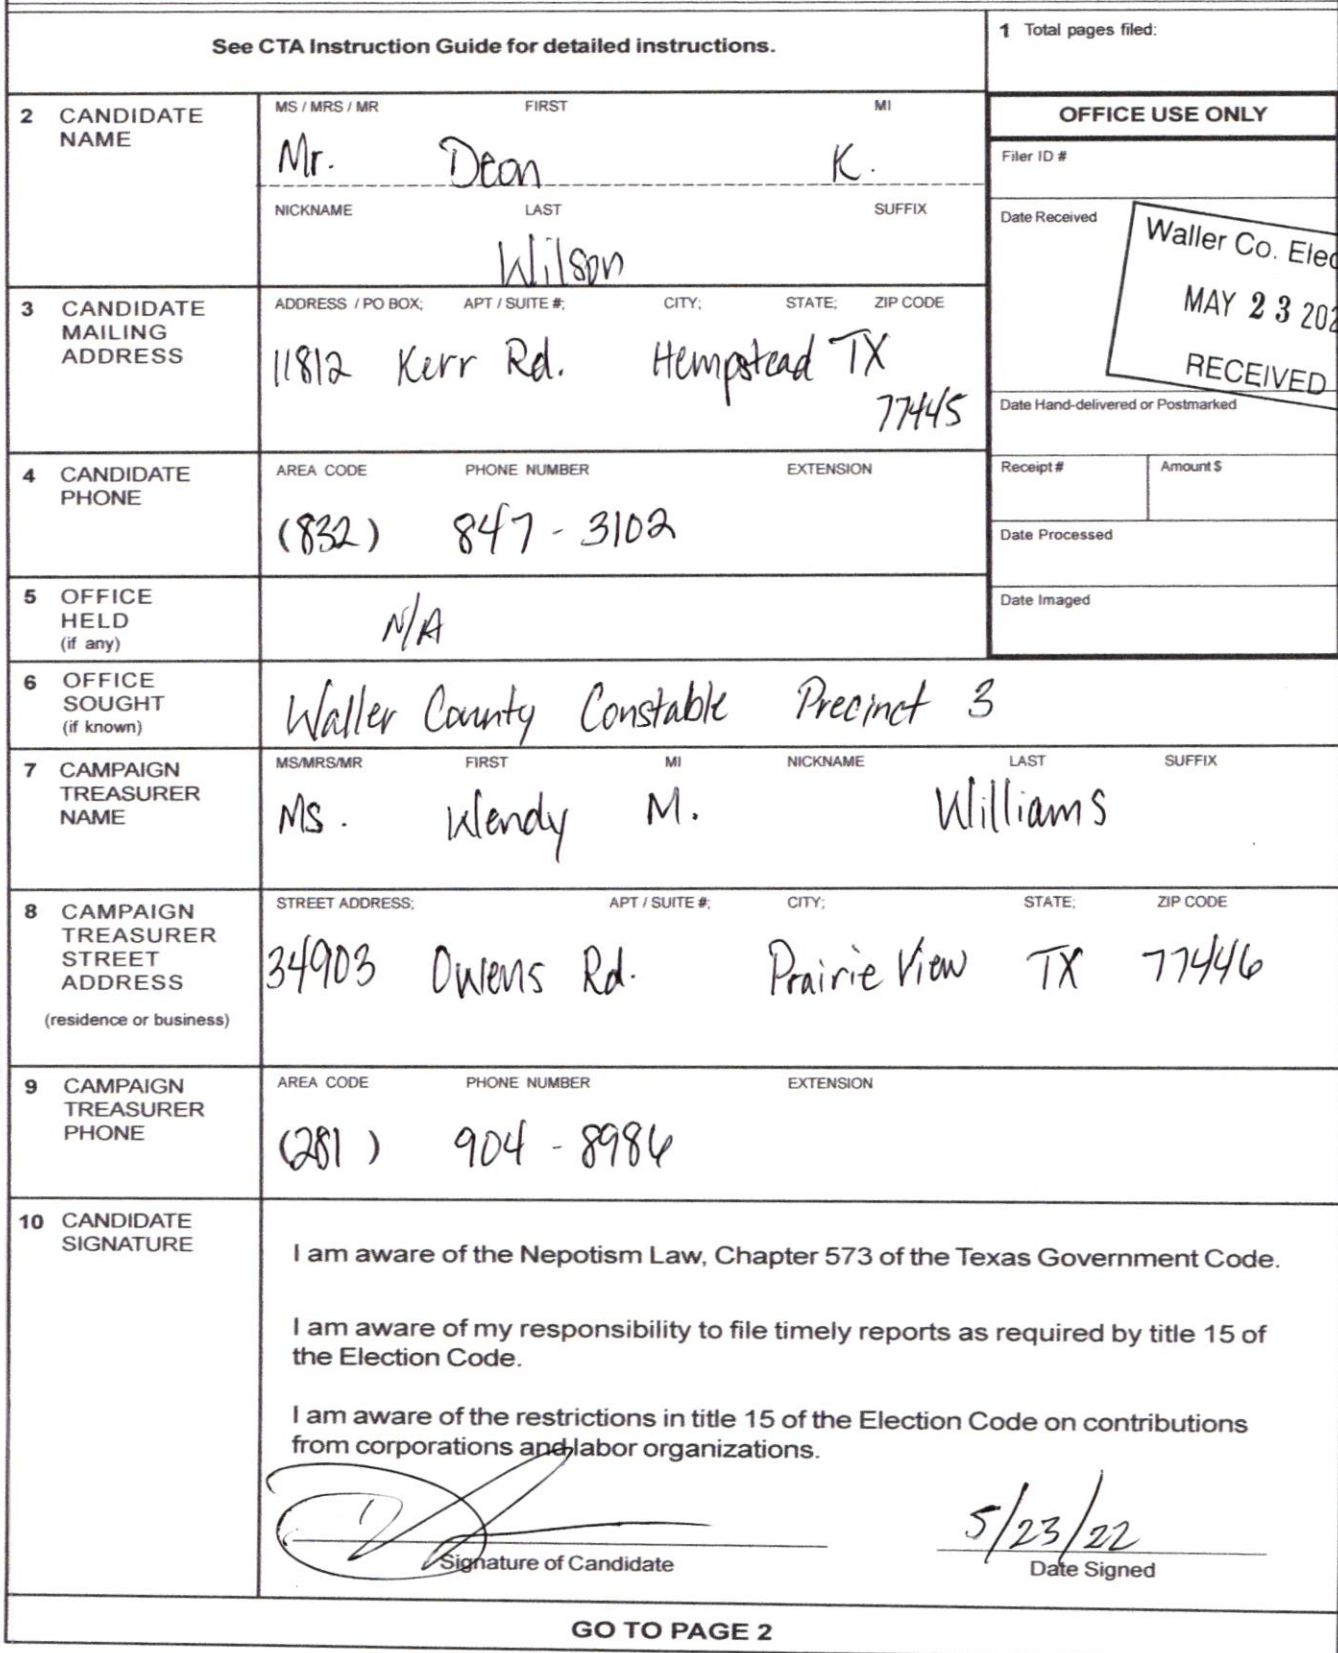 See CTA Instruction Guide for detailed instructions.
1 Total pages filed:
2 CANDIDATE NAME
MS / MRS / MR FIRST MI
Mr. Deon K.
NICKNAME LAST SUFFIX
Wilson
OFFICE USE ONLY
Filer ID #
Date Received
Waller Co. Elec
MAY 23 202
RECEIVED
Date Hand-delivered or Postmarked
Receipt # Amount $
Date Processed
Date Imaged
3 CANDIDATE MAILING ADDRESS
ADDRESS / PO BOX; APT / SUITE #; CITY; STATE; ZIP CODE
11812 Kerr Rd. Hempstead TX
77445
4 CANDIDATE PHONE
AREA CODE PHONE NUMBER EXTENSION
(832) 847-3102
5 OFFICE HELD (if any)
N/A
6 OFFICE SOUGHT (if known)
Waller County Constable Precinct 3
7 CAMPAIGN TREASURER NAME
MS/MRS/MR FIRST MI NICKNAME LAST SUFFIX
Ms. Wendy M. Williams
8 CAMPAIGN TREASURER STREET ADDRESS (residence or business)
STREET ADDRESS; APT / SUITE #; CITY; STATE; ZIP CODE
34903 Owens Rd. Prairie View TX 77446
9 CAMPAIGN TREASURER PHONE
AREA CODE PHONE NUMBER EXTENSION
(281) 904-8986
10 CANDIDATE SIGNATURE
I am aware of the Nepotism Law, Chapter 573 of the Texas Government Code.
I am aware of my responsibility to file timely reports as required by title 15 of
the Election Code.
I am aware of the restrictions in title 15 of the Election Code on contributions
from corporations and labor organizations.
5/23/22
Signature of Candidate Date Signed
GO TO PAGE 2